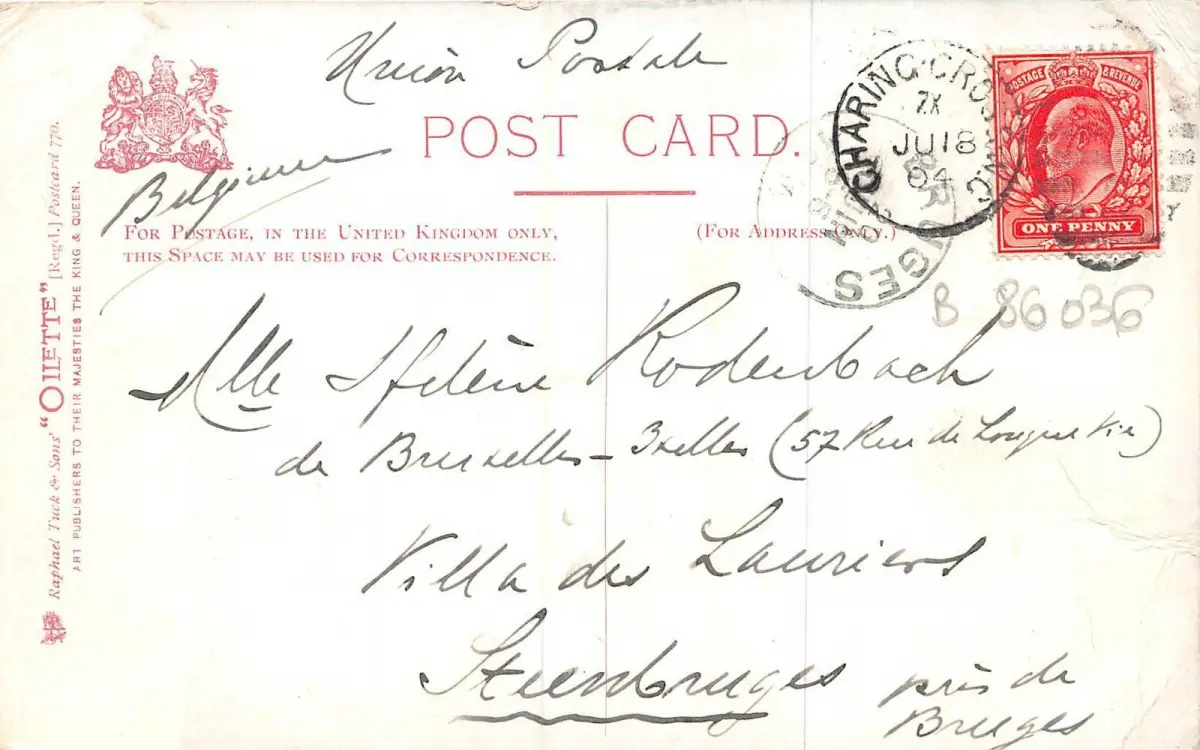 Union Postale
POST CARD.
Belgium
FOR POSTAGE, IN THE UNITED KINGDOM ONLY,
THIS SPACE MAY BE USED FOR CORRESPONDENCE.
(FOR ADDRESS ONLY.)
CHARING CROSS
ZX
JU 18
04
BRUGES
POSTAGE & REVENUE
ONE PENNY
B 86036
Mlle Hélène Rodenbach
de Bruxelles - Ixelles (57 Rue de Longue Vie)
Villa des Lauriers
Steenbruges près de
Bruges
Raphael Tuck & Sons' "OILETTE" [Regd.] Postcard 770.
ART PUBLISHERS TO THEIR MAJESTIES THE KING & QUEEN.